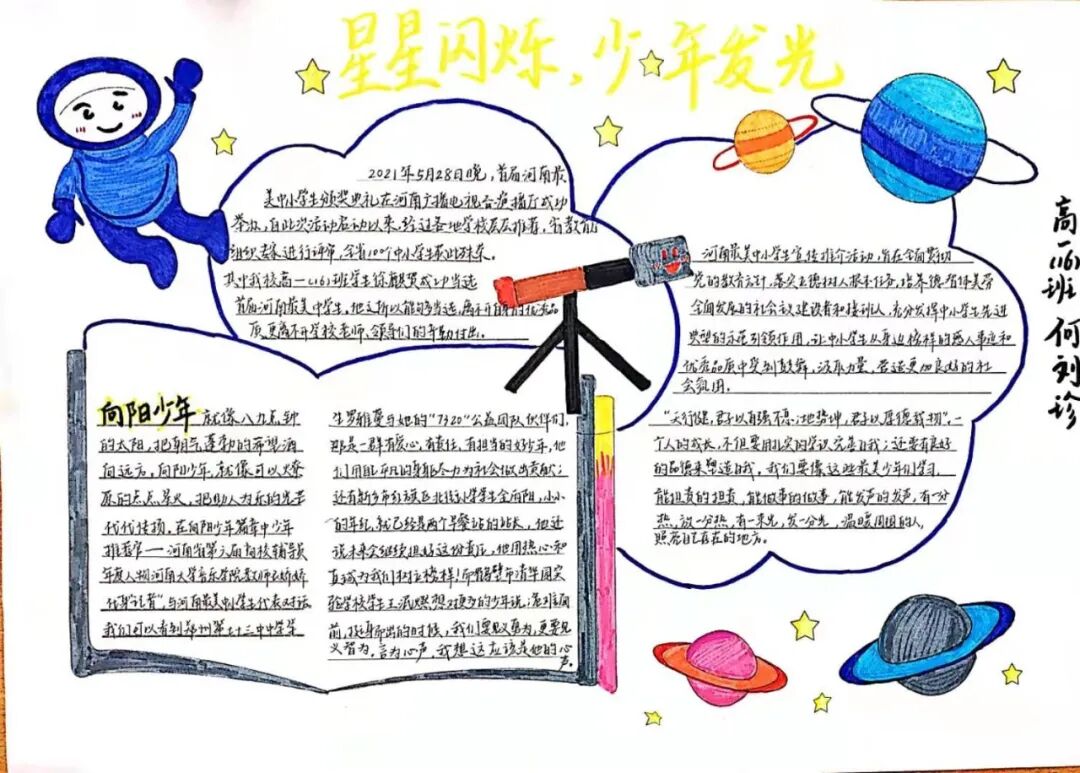 星星闪烁,少年发光
2021年5月28日晚,首届河南最
美中小学生颁奖典礼在河南广播电视台演播厅成功
举办,自此次活动启动以来,经过各地学校层层推荐,省教育厅
组织专家进行评审,全省100个中小学生获此殊荣。
其中我校高一(16)班学生徐麒赞成功当选
首届河南最美中学生,他之所以能够当选,离不开自身的优秀品
质,更离不开学校老师、领导们的辛勤付出。
河南最美中小学生宣传推介活动,旨在全面贯彻
党的教育方针,落实立德树人根本任务,培养德智体美劳
全面发展的社会主义建设者和接班人,充分发挥中小学生先进
典型的示范引领作用,让中小学生从身边榜样的感人事迹和
优秀品质中受到鼓舞,汲取力量,营造更加良好的社
会氛围。
“天行健,君子以自强不息;地势坤,君子以厚德载物”,一
个人的成长,不但要用扎实的学识完善自我;还要有良好
的品德来塑造自我,我们要像这些最美少年们学习,
能担责的担责,能做事的做事,能发声的发声,有一分
热,放一分热,有一束光,发一分光,温暖周围的人,
照亮自己存在的地方。
高一16班 何刘珍
向阳少年 就像八九点钟
的太阳,把朝气蓬勃的希望洒
向远方,向阳少年,就像可以燎
原的点点星火,把助人为乐的光芒
代代传颂,在向阳少年篇章中少年
推荐官——河南省第六届高校辅导员
年度人物河南大学音乐学院教师
代替“记者”,与河南最美中小学生代表对话
我们可以看到郑州第七十三中中学学
生罗雅曼与她的“7320”公益团队伙伴们,
那是一群有爱心,有责任,有担当的好少年,他
们用能所能的尽力为社会做出贡献;
还有新乡市红旗区北街小学学生全向阳,小小
的年纪,就已经是两个早餐站的站长,他还
说未来会继续担好这份责任,他用热心和
真诚为我们树立榜样!而鹤壁市清华园实
验学校学生王淑燃想对更多的少年说,
前,挺身而出的时候,我们要见义勇为,更要见
义智为。言为心声,我想这应该是她的心
声。